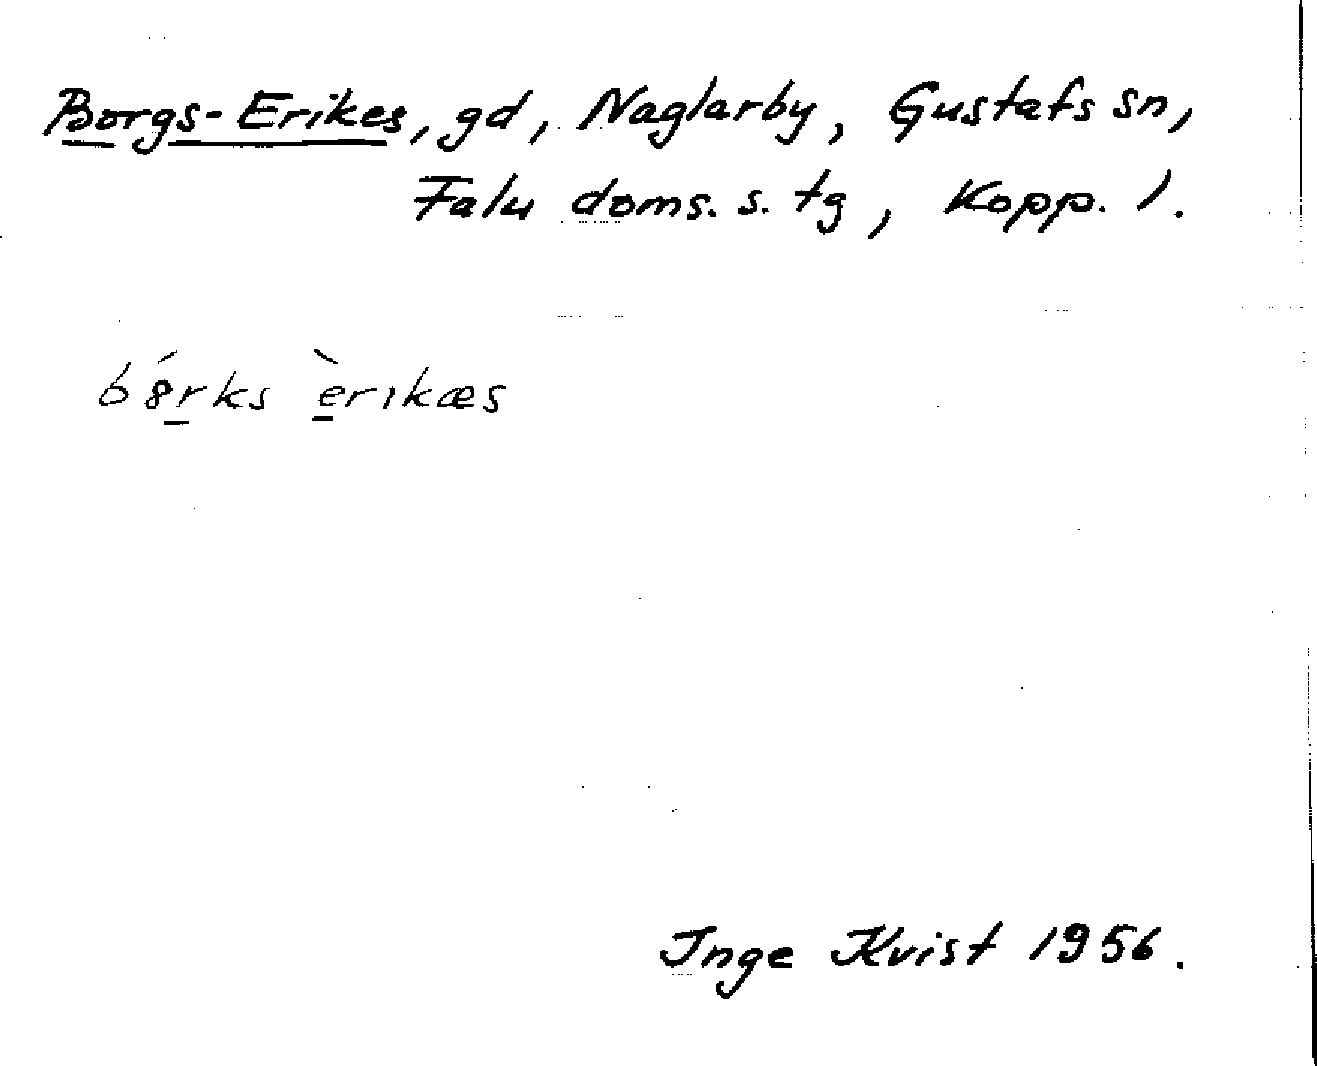 Borgs-Erikes, gd, Naglarby, Gustafs sn,
Falu doms. s. tg, Kopp. l.
b8́rks èrikæs
Inge Kvist 1956.